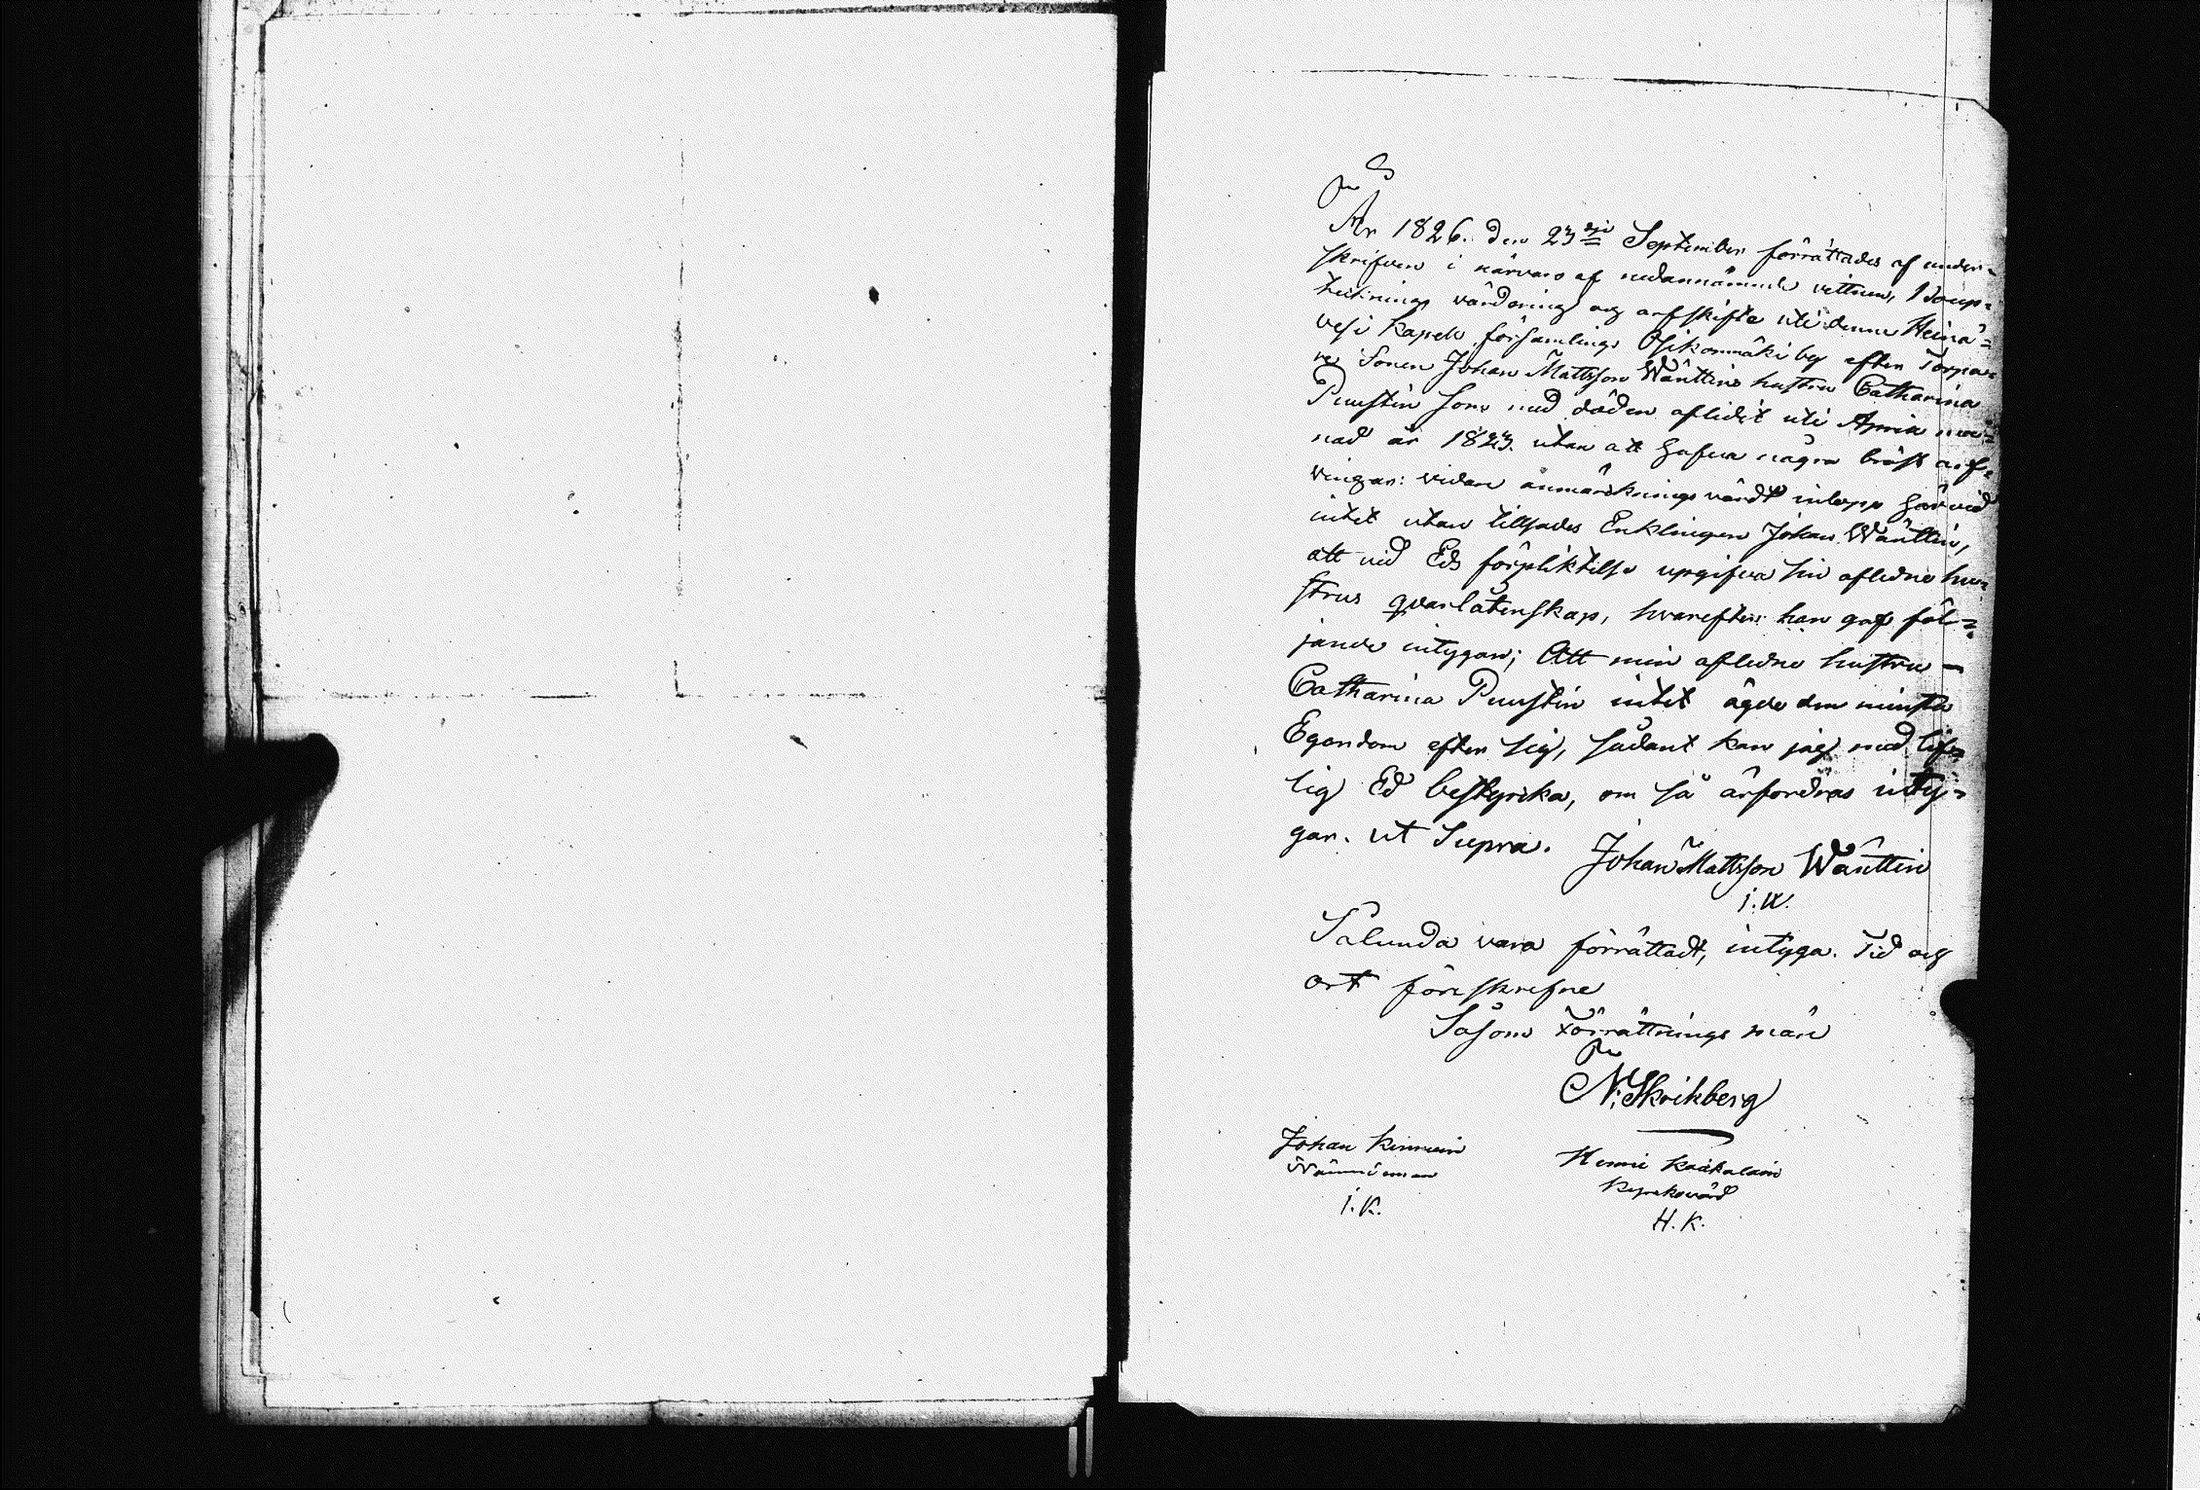 År 1826. den 23dje September förrättades af under-
skrifven i närvaro af nedannämnde vittnen, Boup-
teknings värdering och arfskifte uti denne Heinä-
vesi Kapell församlings Osikonmäki by efter Torpa-
re Sonen Johan Mattsson Wänttins hustru Catharina
Puustin som med döden aflidit uti April må-
nad år 1823. utan att hafva några bröst arf-
vingar: vidare anmärknings värdt inlopp härvid
intet utan tillsades Enklingen Johan Wänttin,
att vid Eds förpliktelse upgifva sin aflidne hu-
strus qvarlåtenskap, hvarefter han gaf föl-
jande intygan; Att min aflidne hustru
Catharina Puustin intet ägde den minsta
Egendom efter sig, sådant kan jag med lif-
lig Ed bestyrka, om så ärfordras inty-
gar. ut Supra. Johan Mattsson Wänttin
I.W.
Sålunda vara förrättadt, intyga. Tid och
ort föreskrefne
Såsom Förrättnings män
N. Skrikberg
Johan Kinnuin
Nämndeman
I.K.
Henric Kaikalain
Kyrkovärd
H.K.